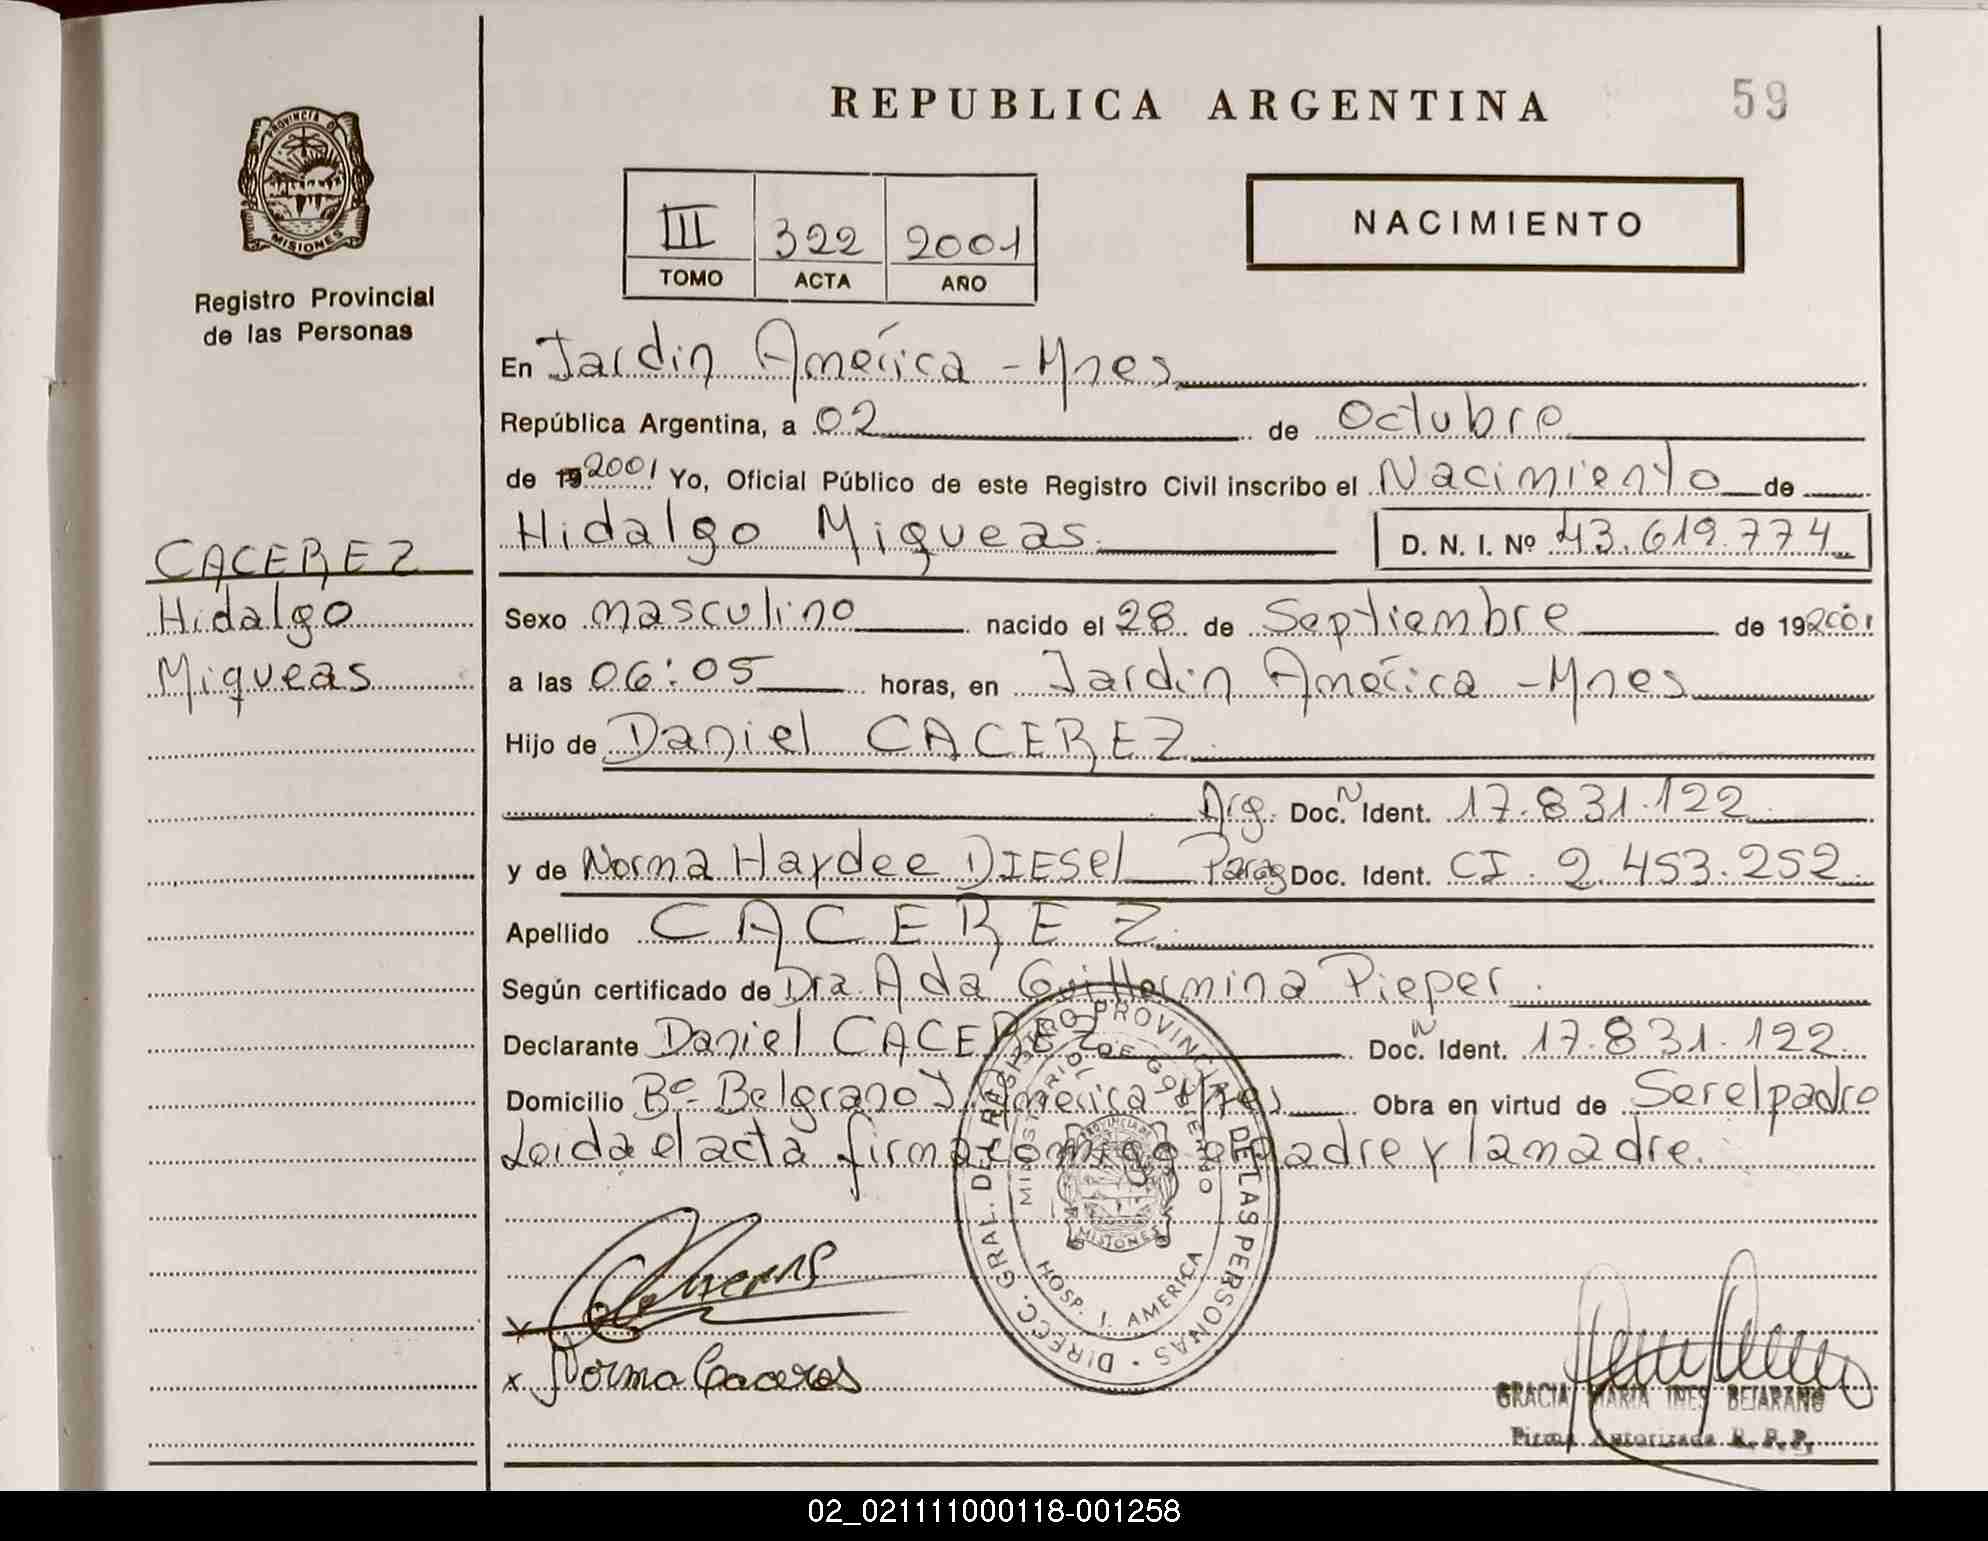 REPUBLICA ARGENTINA
59
PROVINCIA DE
MISIONES
Registro Provincial
de las Personas
III 322 2001
TOMO ACTA AÑO
NACIMIENTO
En Jardin América - Mnes
República Argentina, a 02 de Octubre
de 19 2001 Yo, Oficial Público de este Registro Civil inscribo el Nacimiento de
Hidalgo Miqueas D. N. I. Nº 43.619.774
CACEREZ
Hidalgo
Miqueas
Sexo masculino nacido el 28 de Septiembre de 19 2001
a las 06:05 horas, en Jardin América - Mnes
Hijo de Daniel CACEREZ
Arg. Doc. N Ident. 17.831.122
y de Norma Haydee DIESEL Parag Doc. Ident. CI. 2.453.252
Apellido CACEREZ
Según certificado de Dra. Ada Guillermina Pieper
Declarante Daniel CACEREZ Doc. N Ident. 17.831.122
Domicilio Bº Belgrano J. América - Mnes Obra en virtud de Ser el padre
Leida el acta firma comigo el padre y la madre.
DIRECC. GRAL. DEL REGISTRO PROVINCIAL DE LAS PERSONAS
MINISTERIO DE GOBIERNO
MISIONES
HOSP. J. AMERICA
x
x Norma Caceres
GRACIA MARIA INES BEJARANO
Firma Autorizada R. P. P.
02_021111000118-001258